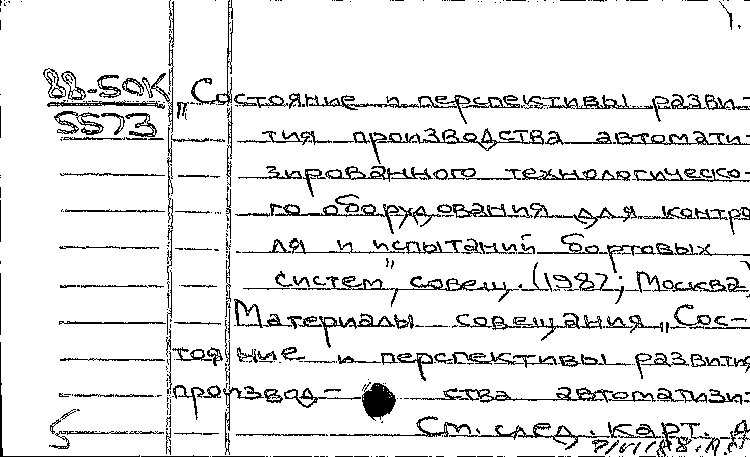 1.
88-50К
5573
„Состояние и перспективы разви-
тия производства автомати-
зированного технологическо-
го оборудования для контро
ля и испытаний бортовых
систем", совещ. (1987; Москва)
Материалы совещания „Сос-
тояние и перспективы развития
производ- ства автоматизи-
См. след. карт.